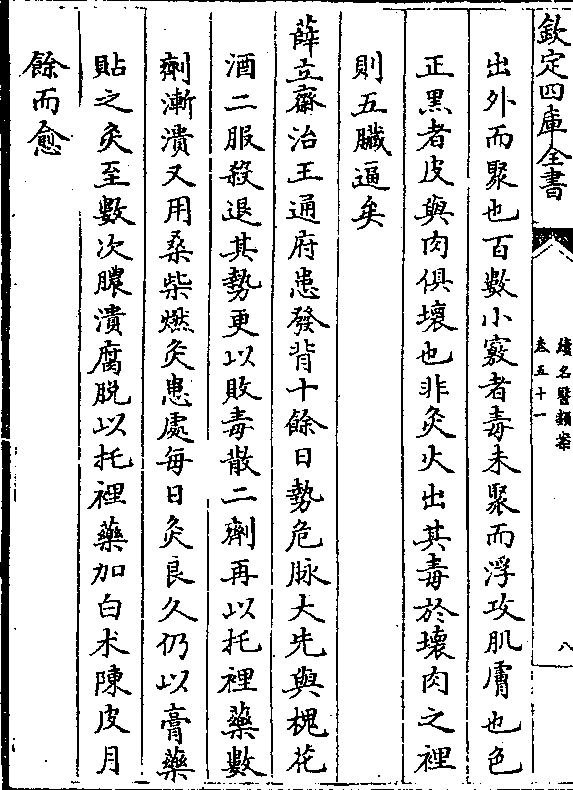 欽定四庫全書
續名醫類案
卷五十一
八
出外而聚也百數小竅者毒未聚而浮攻肌膚也色
正黑者皮與肉俱壞也非灸火出其毒於壞肉之裡
則五臟逼矣
薛立齋治王通府患發背十餘日勢危脉大先與槐花
酒二服殺退其勢更以敗毒散二劑再以托裡藥數
劑漸潰又用桑柴燃灸患處每日灸良久仍以膏藥
貼之灸至數次膿潰腐脱以托裡藥加白朮陳皮月
餘而愈